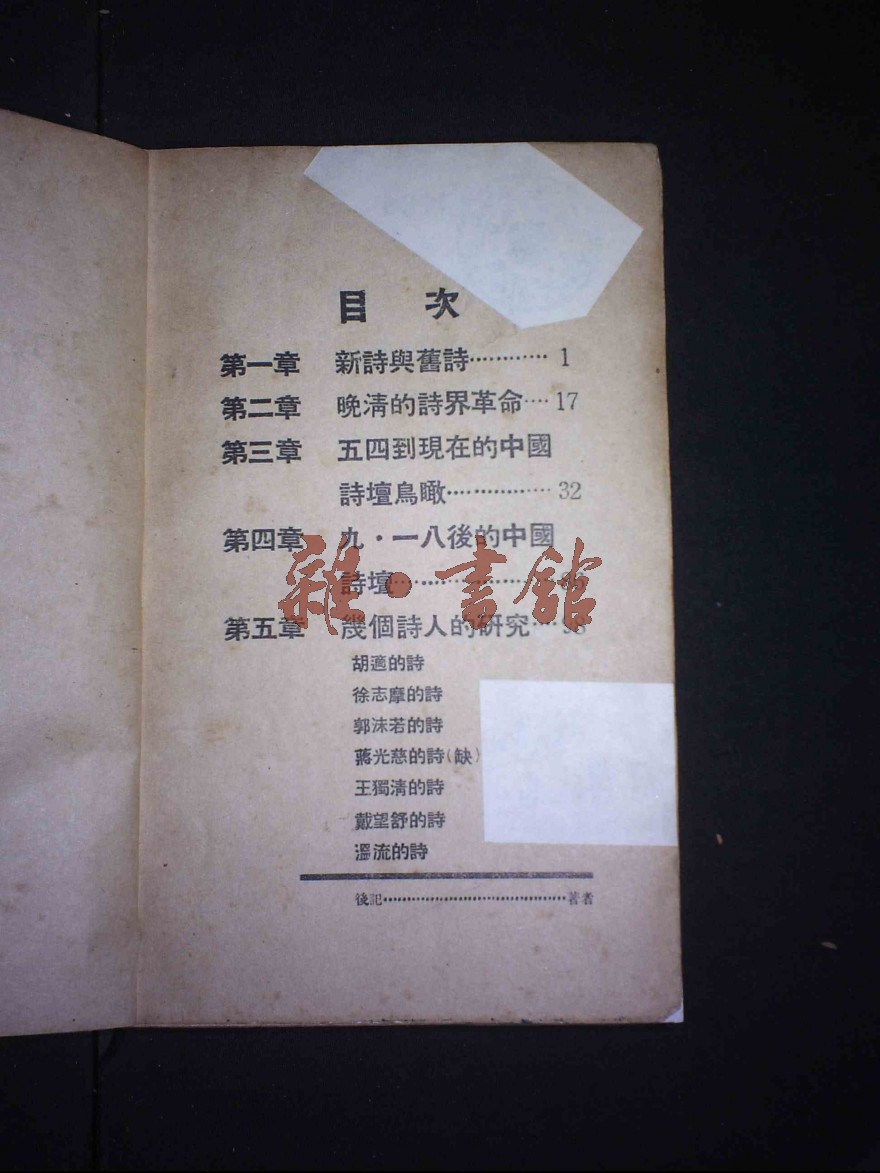 目 次
第一章 新詩與舊詩············ 1
第二章 晚淸的詩界革命····17
第三章 五四到現在的中國
詩壇鳥瞰················32
第四章 九·一八後的中國
詩壇
第五章 幾個詩人的研究····
胡適的詩
徐志摩的詩
郭沫若的詩
蔣光慈的詩(缺)
王獨淸的詩
戴望舒的詩
溫流的詩
後記········································著者
雜·書館